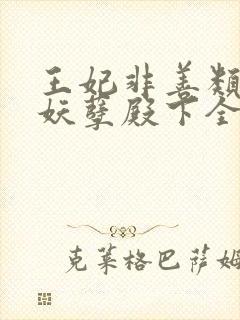 王妃非善類
妖孽殿下全
克莱格巴萨姆